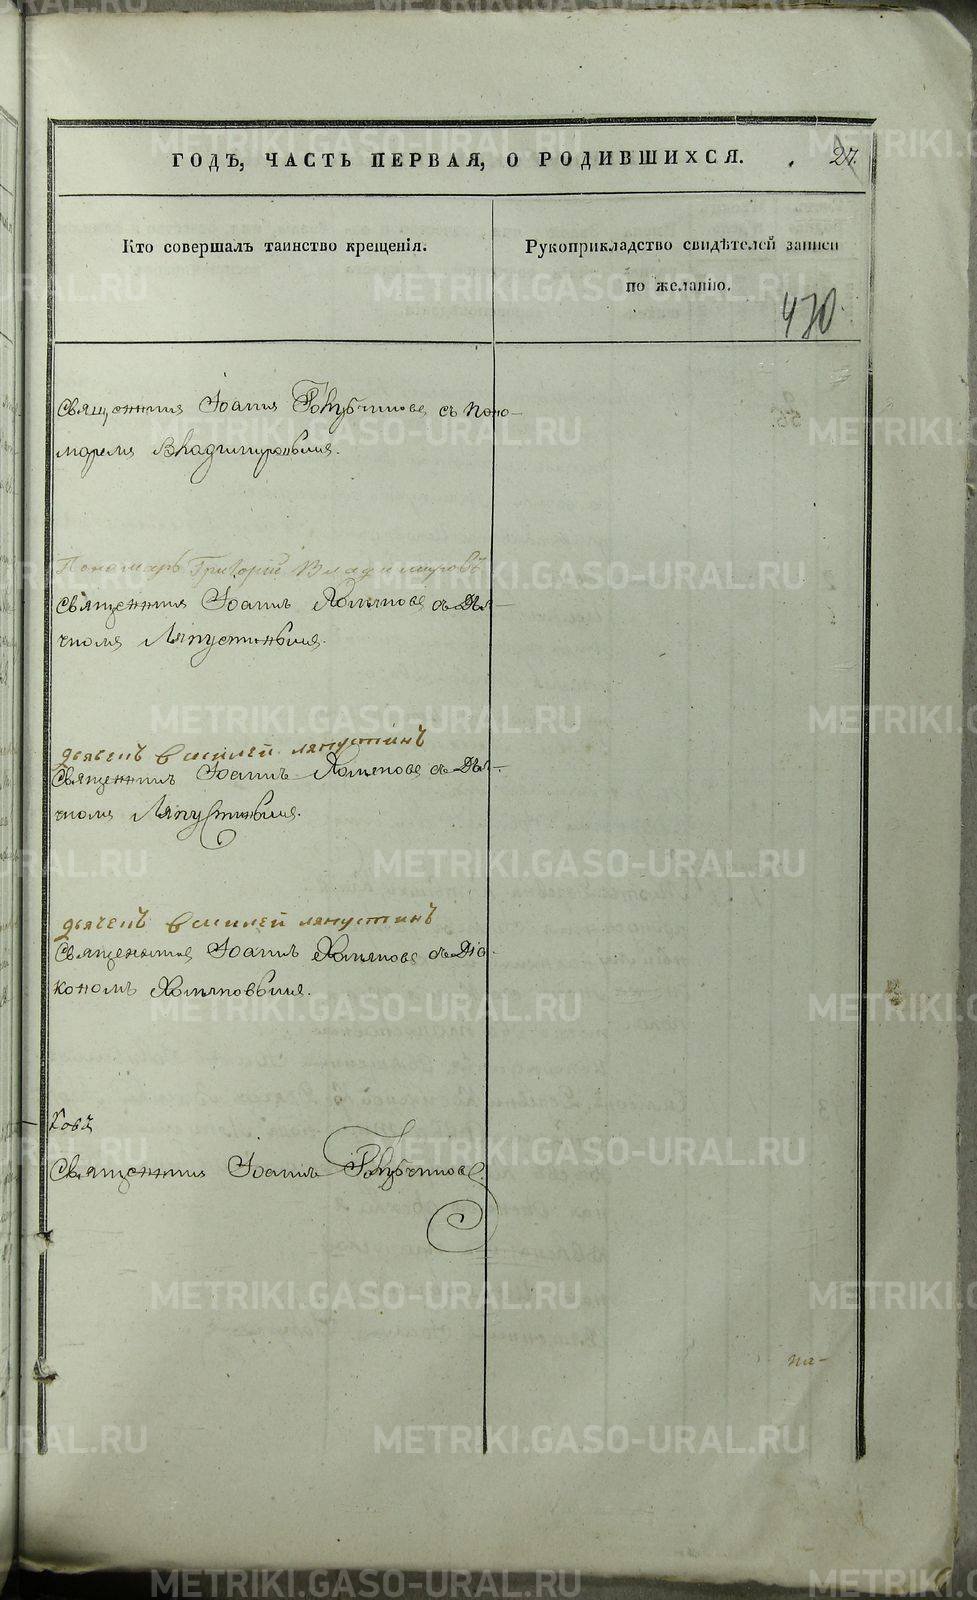 ГОДЪ, ЧАСТЬ ПЕРВАЯ, О РОДИВШИХСЯ.
27.
Кто совершалъ таинство крещенія.
Рукоприкладство свидѣтелей записи
по желанію.
470
Священникъ Іоаннъ Голубчиковъ съ Поно-
маремъ Владимировымъ.
Пономарь Григорій Владимировъ
Священникъ Іоаннъ Хомяковъ съ Дья-
чкомъ Ляпустинымъ.
дьячекъ Василей ляпустинъ
Священникъ Іоаннъ Хомяковъ съ Дья-
чкомъ Ляпустинымъ.
дьячекъ Василей ляпустинъ
Священникъ Іоаннъ Хомяковъ съ Діа-
кономъ Хомяковымъ.
ковъ
Священникъ Іоаннъ Голубчиковъ.
на-
METRIKI.GASO-URAL.RU